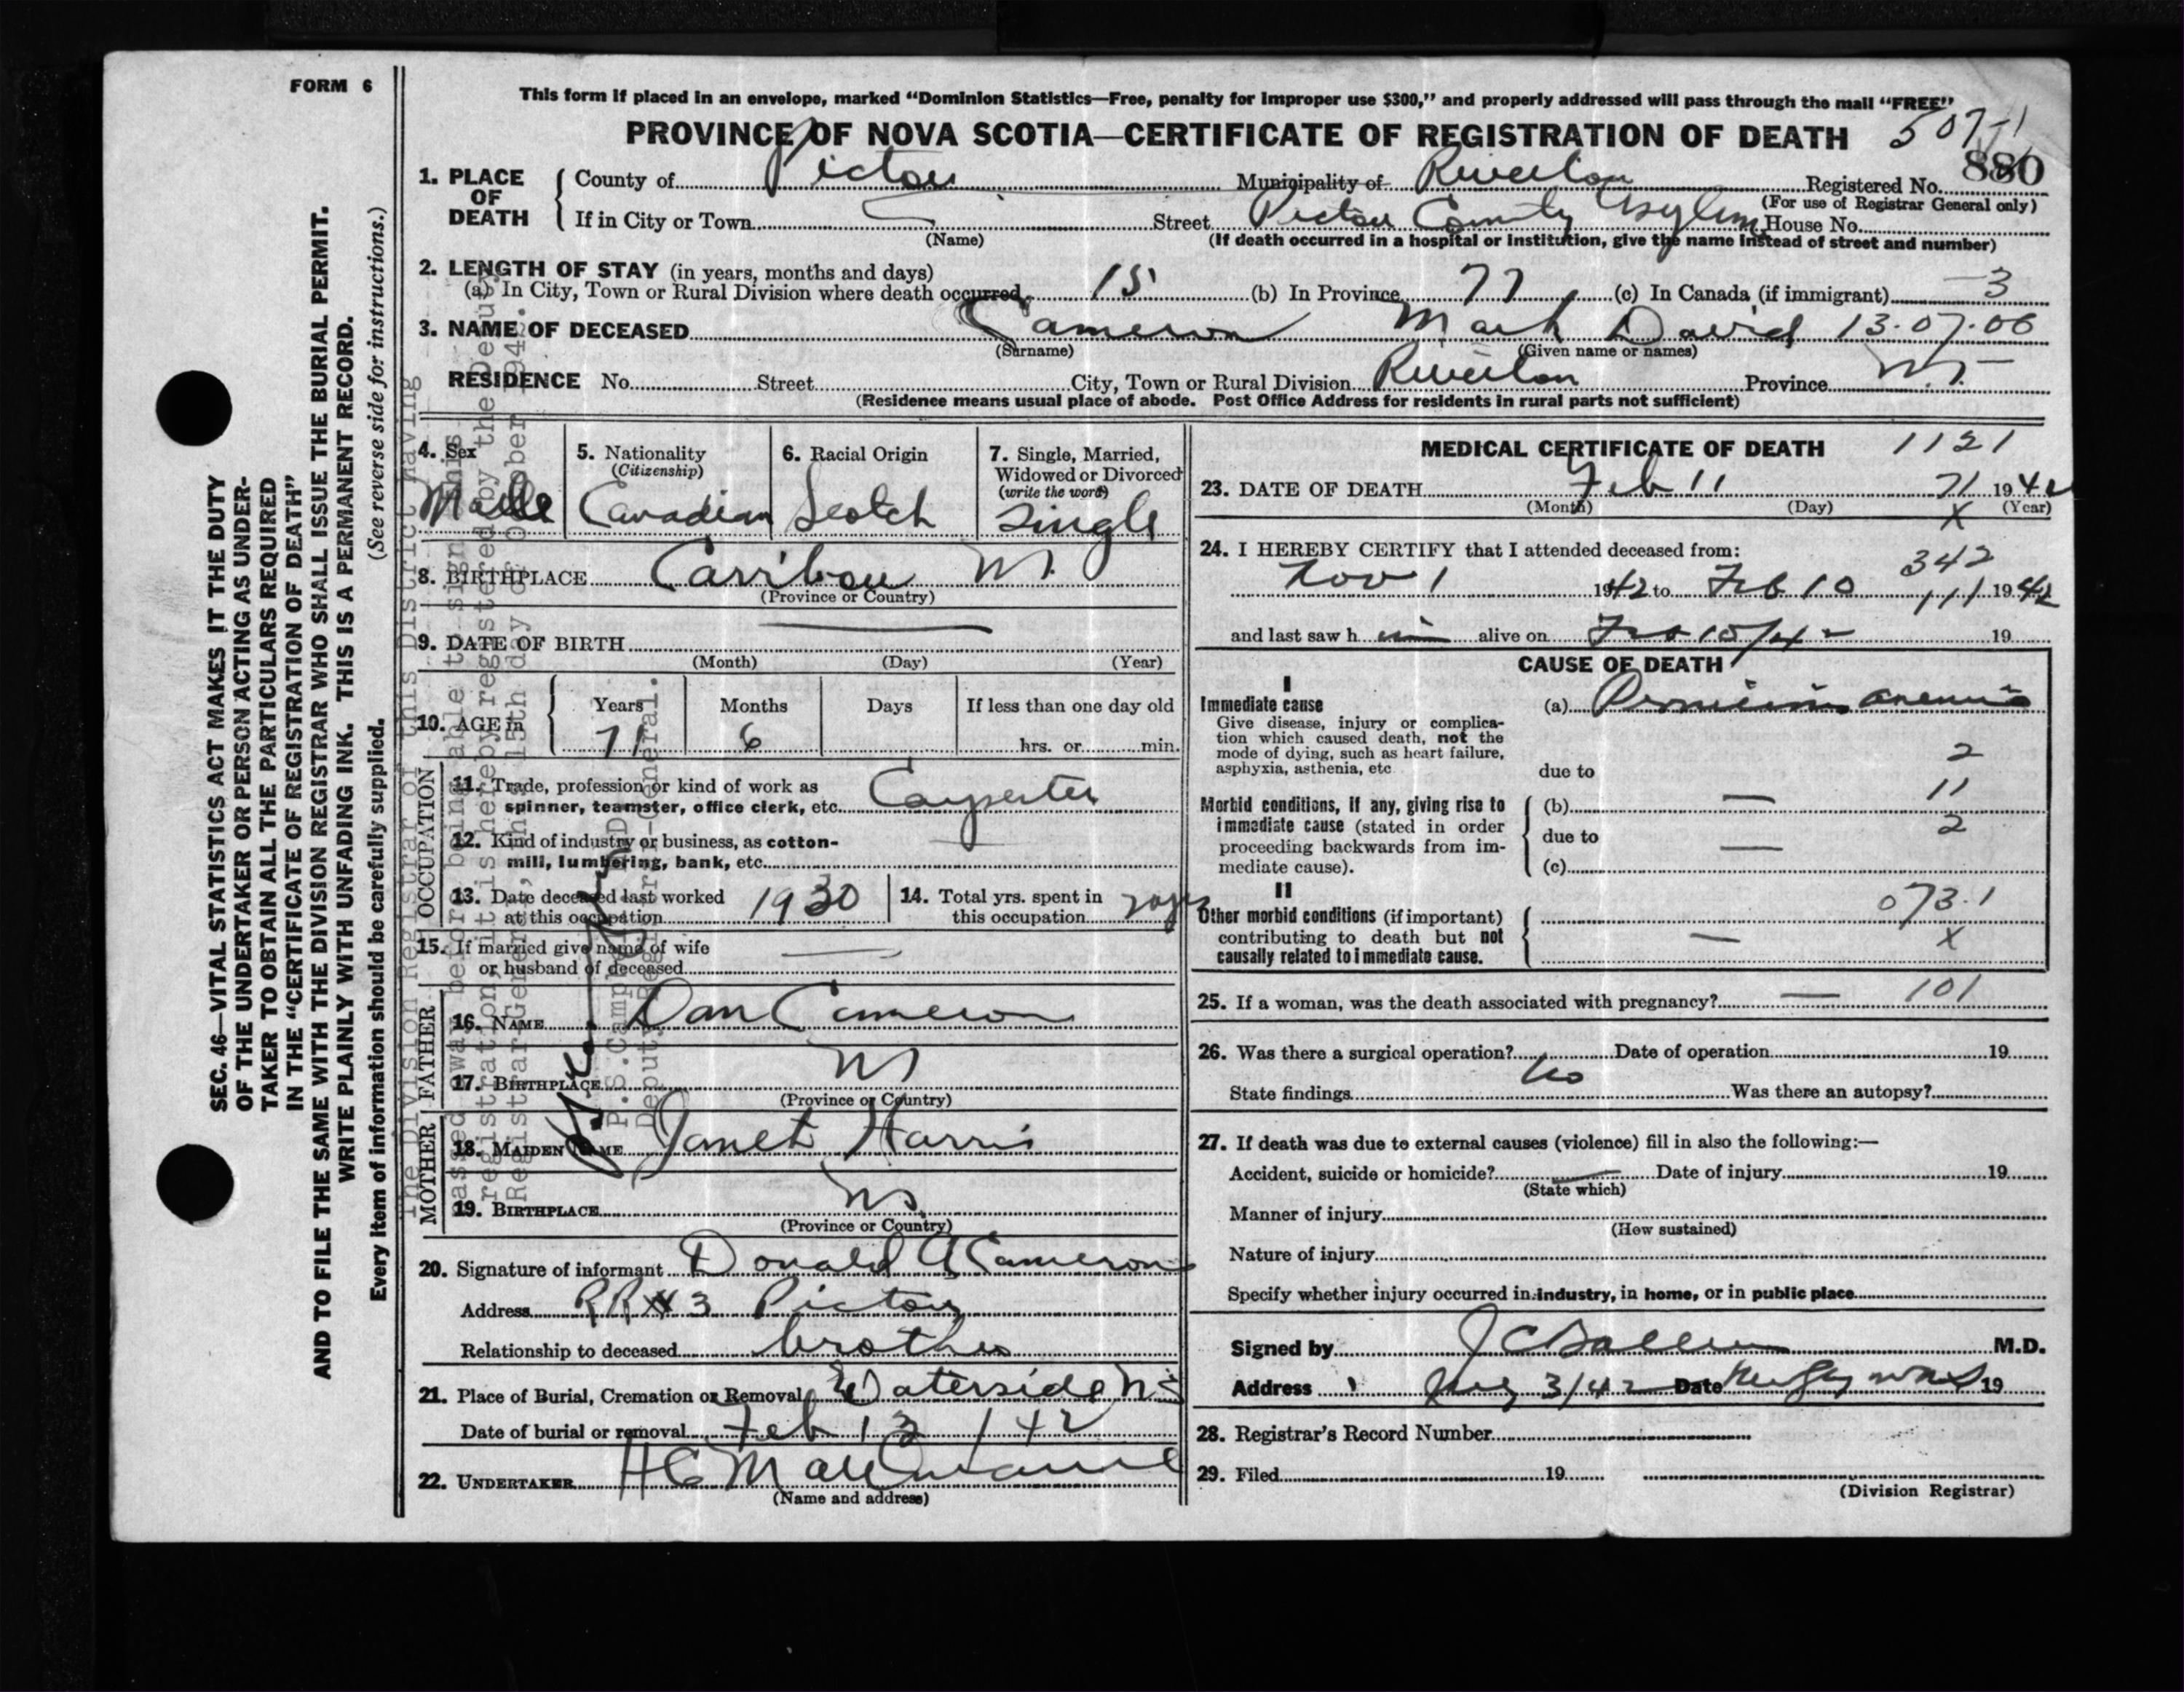 FORM 6
This form if placed in an envelope, marked “Dominion Statistics—Free, penalty for improper use $300,” and properly addressed will pass through the mail “FREE”
PROVINCE OF NOVA SCOTIA—CERTIFICATE OF REGISTRATION OF DEATH 507-1
880
1. PLACE OF DEATH
County of Pictou Municipality of Riverton Registered No.
(For use of Registrar General only)
If in City or Town Street Pictou County Asylum House No.
(Name) (If death occurred in a hospital or institution, give the name instead of street and number)
2. LENGTH OF STAY (in years, months and days)
(a) In City, Town or Rural Division where death occurred 15 (b) In Province 77 (c) In Canada (if immigrant) —3
3. NAME OF DECEASED Cameron Mark David 13.07.06
(Surname) (Given name or names)
RESIDENCE No. Street City, Town or Rural Division Riverton Province N.S.
(Residence means usual place of abode. Post Office Address for residents in rural parts not sufficient)
4. Sex
Male
5. Nationality
(Citizenship)
Canadian
6. Racial Origin
Scotch
7. Single, Married, Widowed or Divorced
(write the word)
Single
8. BIRTHPLACE Carribou N.S.
(Province or Country)
9. DATE OF BIRTH —
(Month) (Day) (Year)
10. AGE in Years Months Days If less than one day old
77 6 hrs. or min.
OCCUPATION
11. Trade, profession or kind of work as
spinner, teamster, office clerk, etc. Carpenter
12. Kind of industry or business, as cotton-
mill, lumbering, bank, etc. —
13. Date deceased last worked
at this occupation 1930
14. Total yrs. spent in
this occupation
15. If married give name of wife
or husband of deceased —
FATHER
16. NAME Dan Cameron
17. BIRTHPLACE NS
(Province or Country)
MOTHER
18. MAIDEN NAME Janet Harris
19. BIRTHPLACE NS.
(Province or Country)
20. Signature of informant Donald A Cameron
Address RR # 3 Pictou
Relationship to deceased brother
21. Place of Burial, Cremation or Removal Waterside NS
Date of burial or removal Feb 13 / 42
22. UNDERTAKER H C
(Name and address)
MEDICAL CERTIFICATE OF DEATH 1121
23. DATE OF DEATH Feb 11 71 1942
(Month) (Day) (Year)
X
24. I HEREBY CERTIFY that I attended deceased from:
342
Nov 1 1942 to Feb 10 111 1942
and last saw h im alive on Feb 10/42 19
CAUSE OF DEATH
I
Immediate cause
Give disease, injury or complica-
tion which caused death, not the
mode of dying, such as heart failure,
asphyxia, asthenia, etc
(a) Pernicious anemia
2
due to
Morbid conditions, if any, giving rise to
immediate cause (stated in order
proceeding backwards from im-
mediate cause).
(b) — 11
due to 2
(c) —
II
Other morbid conditions (if important)
contributing to death but not
causally related to immediate cause.
073.1
— X
25. If a woman, was the death associated with pregnancy? — 101
26. Was there a surgical operation? No Date of operation 19
State findings Was there an autopsy?
27. If death was due to external causes (violence) fill in also the following:—
Accident, suicide or homicide? — Date of injury 19
(State which)
Manner of injury
(How sustained)
Nature of injury
Specify whether injury occurred in industry, in home, or in public place
Signed by M.D.
Address 3/42 Date 19
28. Registrar's Record Number
29. Filed 19
(Division Registrar)
SEC. 46—VITAL STATISTICS ACT MAKES IT THE DUTY
OF THE UNDERTAKER OR PERSON ACTING AS UNDER-
TAKER TO OBTAIN ALL THE PARTICULARS REQUIRED
IN THE “CERTIFICATE OF REGISTRATION OF DEATH”
AND TO FILE THE SAME WITH THE DIVISION REGISTRAR WHO SHALL ISSUE THE BURIAL PERMIT.
WRITE PLAINLY WITH UNFADING INK. THIS IS A PERMANENT RECORD.
Every item of information should be carefully supplied. (See reverse side for instructions.)
The Division Registrar of this District having
passed away before being able to sign this
registration, it is hereby registered by the Deputy
Registrar-General, this 15th day of October 194
Deputy Registrar-General.